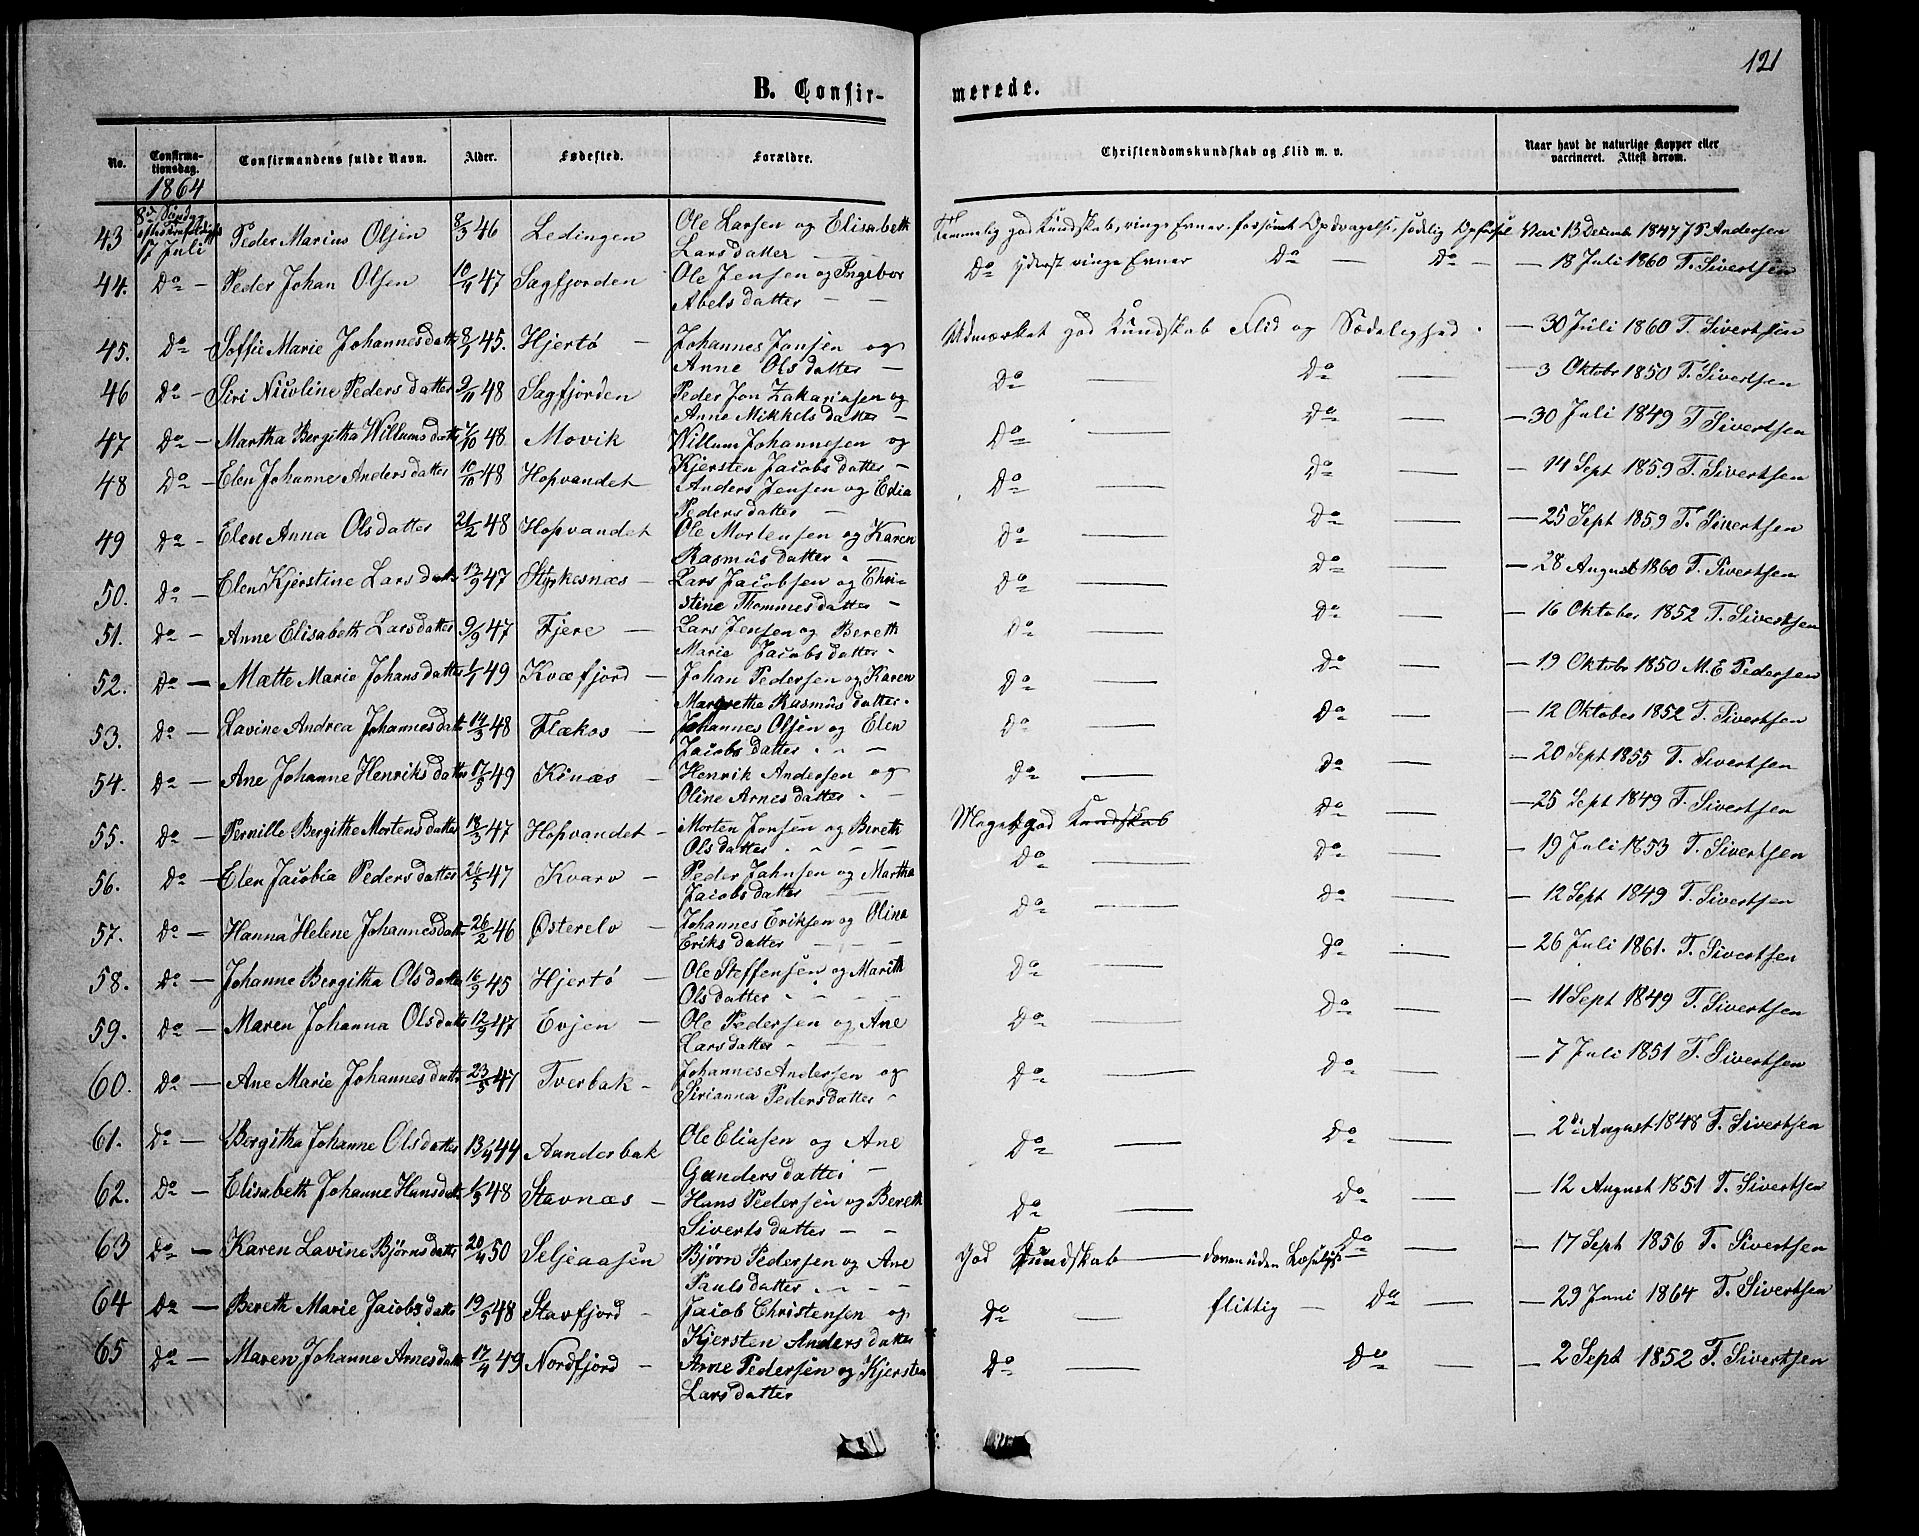 121
B. Confirmerede.
No. Confirmationsdag. Confirmandens fulde Navn. Alder. Fødested. Forældre. Christendomskundskab og Flid m. v. Naar havt de naturlige Kopper eller vaccineret. Attest derom.
1864
8de Søndag
17 Juli
43 Peder Marius Olsen 8/3 46 Ledingen Ole Larsen og Elisabeth Larsdatter Temmelig god Kundskab, ringe Evner, forsømt Opdragelse, sædelig Opførsel Vac 13 Decemb 1847 J P Andersen
44. Do Peder Johan Olsen 10/4 47 Sagfjorden Ole Jensen og Ingebor Abelsdatter Do yderst ringe Evner Do Do 18 Juli 1860 T. Sivertsen
45. Do Soffie Marie Johannesdatter 45. Hjertö Johannes Jonsen og Anne Olsdatter Udmærket god Kundskab Flid og Sædelighed. 30 Juli 1860 T. Sivertsen
46 Do Siri Nicoline Pedersdatter 9/11 48 Sagfjorden Peder Jon Zakariasen og Anne Mikkelsdatter Do Do 3 Oktobr 1850 T. Sivertsen
47 Do Martha Bergitha Willumsdatter 48 Movik Willum Johannesen og Kjersten Jacobsdatter Do Do 30 Juli 1849 T Sivertsen
48 Do Elen Johanne Andersdatter 10/10 48 Hopvandet Anders Jensen og Edia Pedersdatter Do Do 14 Sept 1859 T. Sivertsen
49 Do Elen Anna Olsdatter 21/2 48 Hopvandet Ole Mortensen og Karen Rasmusdatter Do Do 25 Sept 1859 T. Sivertsen
50. Do Elen Kjerstine Larsdatter 13/9 47 Styrkesnæs Lars Jacobsen og Christine Thommesdatter Do Do 28 August 1860 T. Sivertsen
51. Do Anne Elisabeth Larsdatter 9/9 47 Fjere Lars Jensen og Bereth Marie Jacobsdatter Do Do 16 Oktober 1852 T. Sivertsen
52. Do Mætte Marie Johansdatter 1/1 49 Kvæfjord Johan Pedersen og Karen Margrethe Rasmusdatter Do Do 19 Oktobr 1850 M. E Pedersen
53. Do Lavine Andrea Johannesdatt 14/3 48 Flækos Johannes Olsen og Elen Jacobsdatter Do Do 12 Oktober 1852 T. Sivertsen
54. Do Ane Johanne Henriksdatter 17/3 49 Kinæs Henrik Andersen og Oline Arnesdatter Do Do 20 Sept 1855 T. Sivertsen
55. Do Pernille Bergithe Mortensdatter 18/3 47 Hopvandet Morten Jonsen og Bereth Olsdatter Meget god Kundskab Do 25 Sept 1849 T. Sivertsen
56. Do Elen Jacobia Pedersdatter 26/5 47 Kvarv Peder Johnsen og Martha Jacobsdatter Do Do 19 Juli 1853 T. Sivertsen
57. Do Hanna Helene Johannesdatt 26/2 46 Østerelv Johannes Eriksen og Olina Eriksdatter Do Do 12 Sept 1849 T. Sivertsen
58. Do Johanne Bergitha Olsdatter 16/9 45 Hjertö Ole Steffensen og Marith Olsdatter Do Do 26 Juli 1861. T. Sivertsen
59. Do Maren Johanna Olsdatte 12/9 47 Evjen Ole Pedersen og Ane Larsdatter Do Do 11 Sept 1849 T. Sivertsen
60. Do Ane Marie Johannesdatte 23/5 47 Tverbak Johannes Andersen og Sirianna Pedersdatter Do Do 7 Juli 1851 T. Sivertsen
61. Do Bergitha Johanne Olsdatter 13/4 44 Aanderbak Ole Eliasen og Ane Gundersdatter Do Do August 1848 T. Sivertsen
62. Do Elisabeth Johanne Hansdatt 48 Stavnæs Hans Pedersen og Bereth Sivertsdatter Do Do 12 August 1851 T. Sivertsen
63 Do Karen Lavine Bjørnsdatte 20/4 50 Seljeaasen Bjørn Pedersen og Ane Paulsdatter God Kundskab Do 17 Sept 1856 T. Sivertsen
64 Do Bereth Marie Jacobsdatte 19/5 48 Stavfjord Jacob Christensen og Kjersten Andersdatter Do flittig Do 29 Juni 1864 T. Sivertsen
65 Do Maren Johanne Arnesdatt 17/4 49 Nordfjord Arne Pedersen og Kjersten Larsdatter Do Do 2 Sept 1852 T. Sivertsen